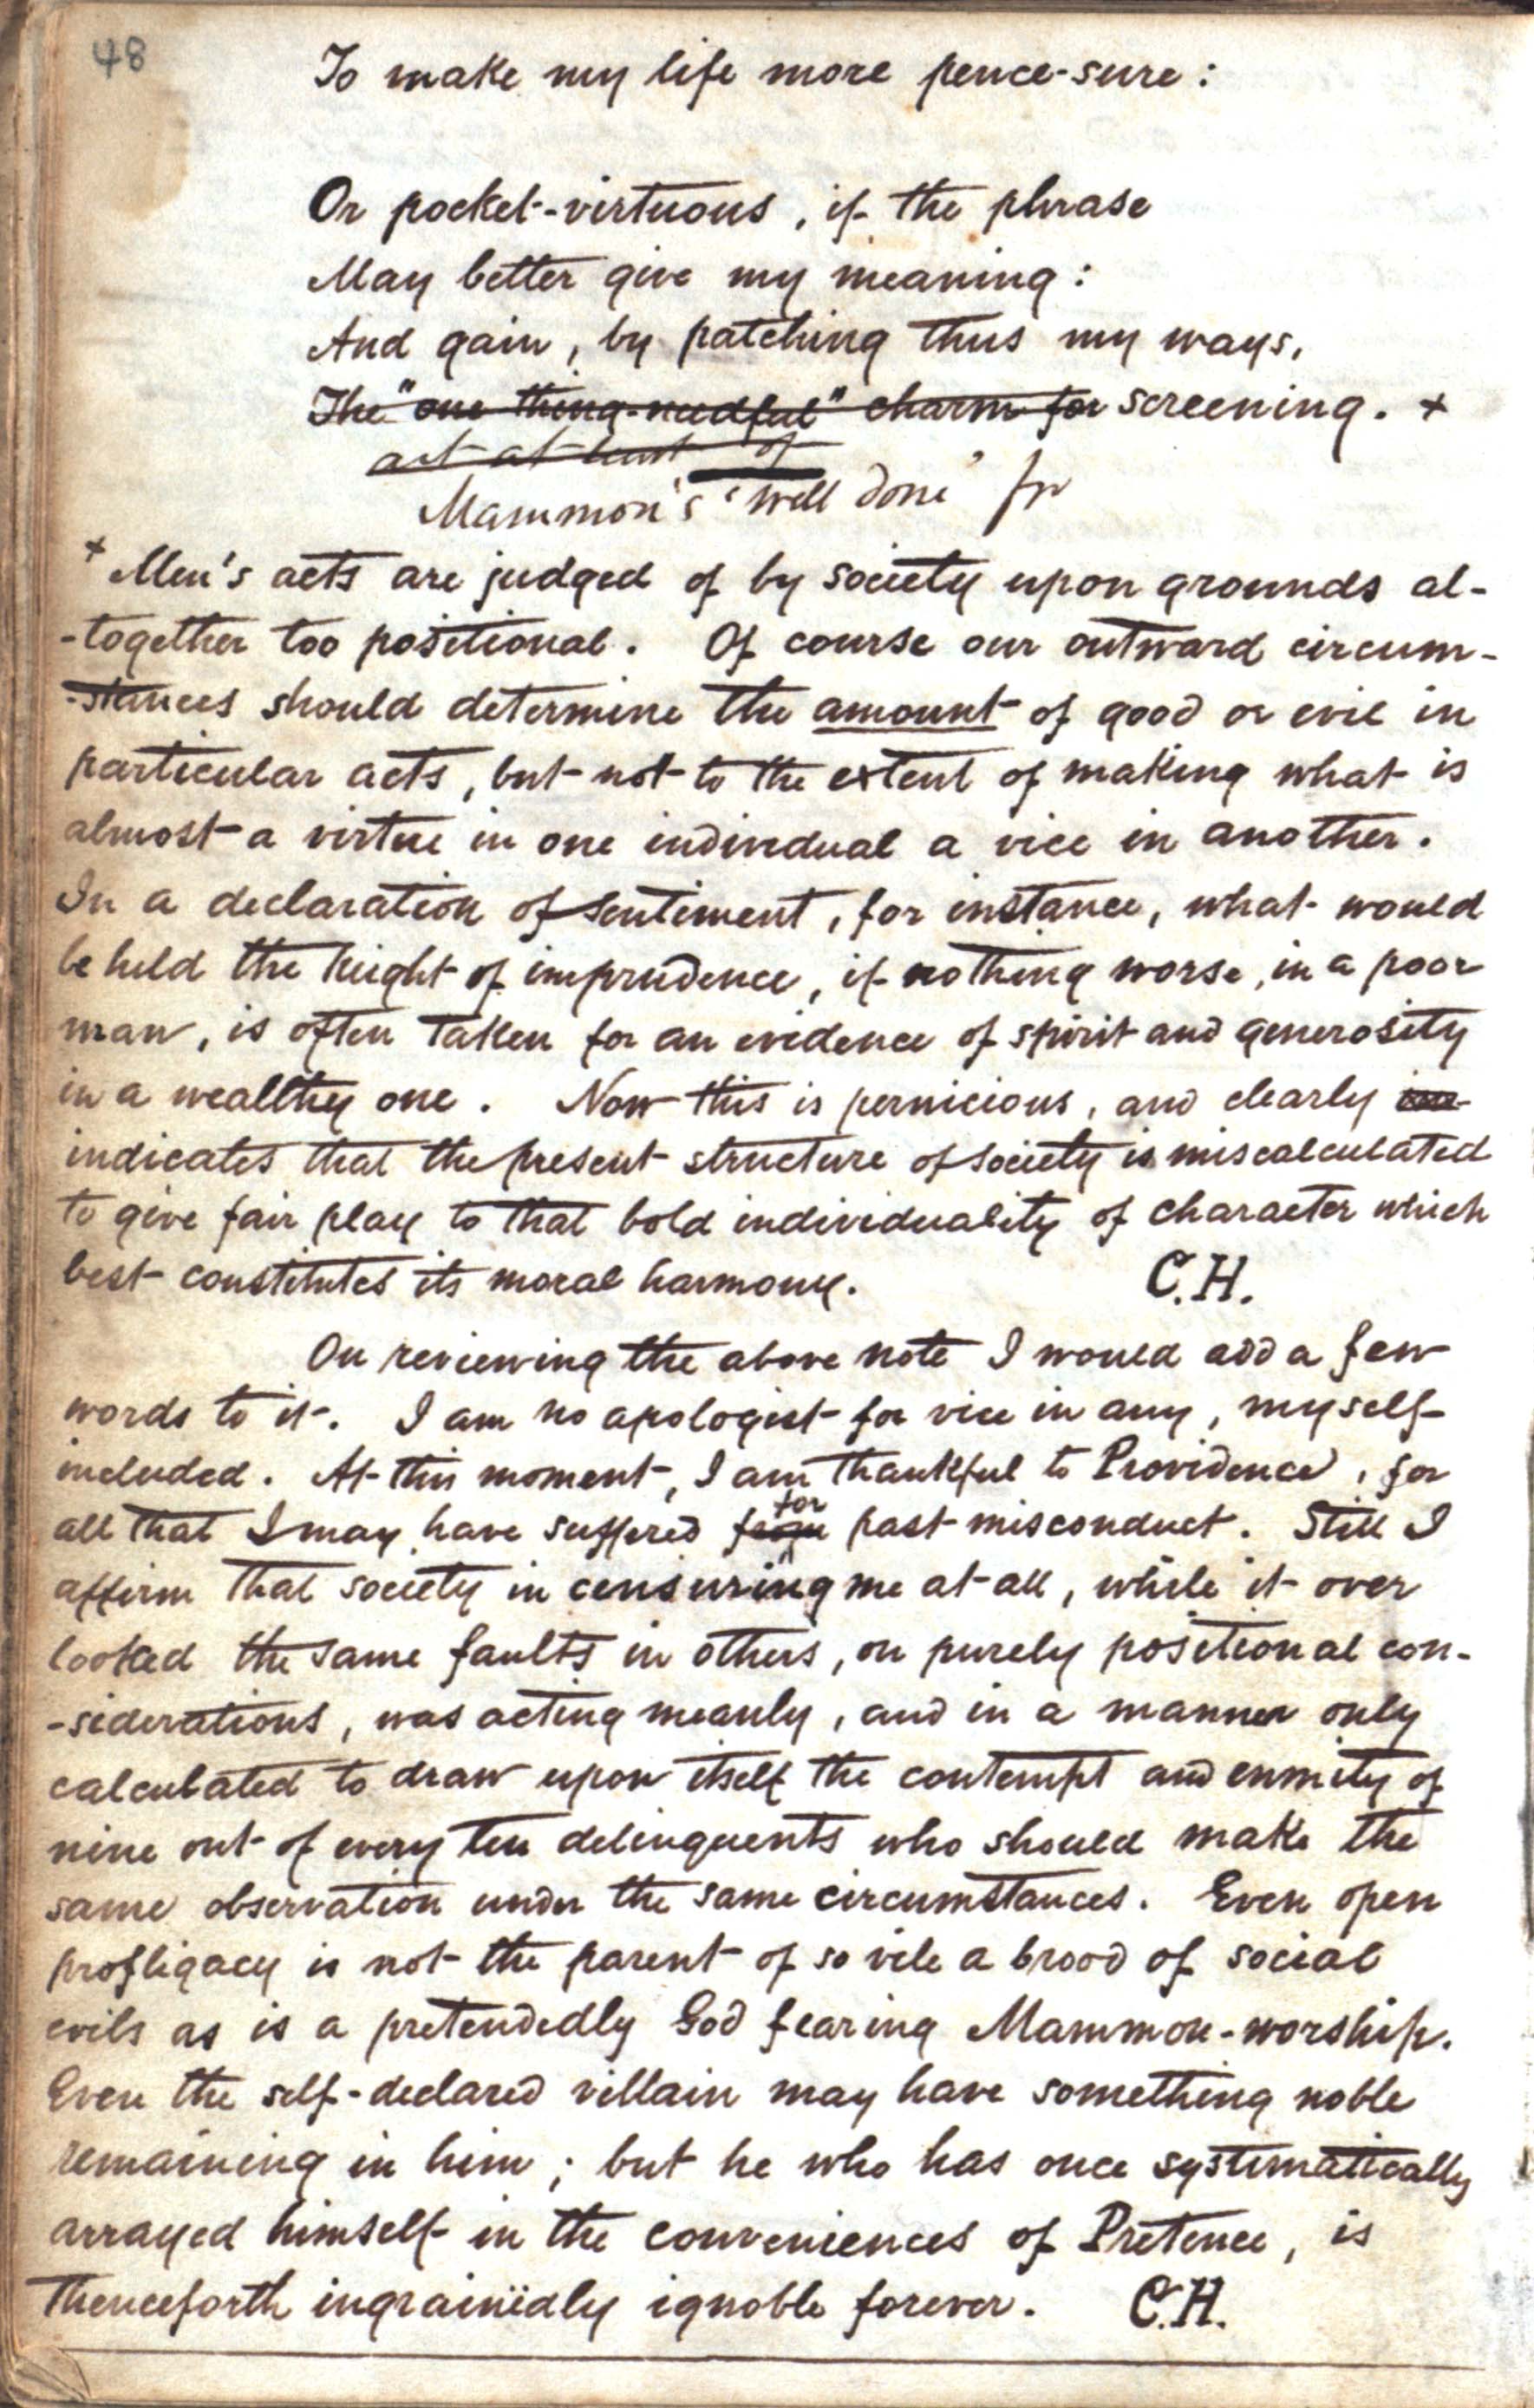 48
To make my life more pence-sure:
Or pocket-virtuous, if the phrase
May better give my meaning:
And gain, by patching thus my ways,
The "one thing-needful" charm for screening. +
art at least of
Mammon's 'well done' for
+ Men's acts are judged of by society upon grounds al-
-together too positional. Of course our outward circum-
-stances should determine the amount of good or evil in
particular acts, but not to the extent of making what is
almost a virtue in one individual a vice in another.
In a declaration of sentiment, for instance, what would
be held the height of imprudence, if nothing worse, in a poor
man, is often taken for an evidence of spirit and generosity
in a wealthy one. Now this is pernicious, and clearly
indicates that the present structure of society is miscalculated
to give fair play to that bold individuality of character which
best constitutes its moral harmony. C.H.
On reviewing the above note I would add a few
words to it. I am no apologist for vice in any, myself
included. At this moment, I am thankful to Providence, for
for
all that I may have suffered from past misconduct. Still I
affirm that society in censuring me at all, while it over
looked the same faults in others, on purely positional con-
-siderations, was acting meanly, and in a manner only
calculated to draw upon itself the contempt and enmity of
nine out of every ten delinquents who should make the
same observation under the same circumstances. Even open
profligacy is not the parent of so vile a brood of social
evils as is a pretendedly God fearing Mammon-worship.
Even the self-declared villain may have something noble
remaining in him; but he who has once systematically
arrayed himself in the conveniences of Pretence, is
thenceforth ingrainedly ignoble forever. C.H.